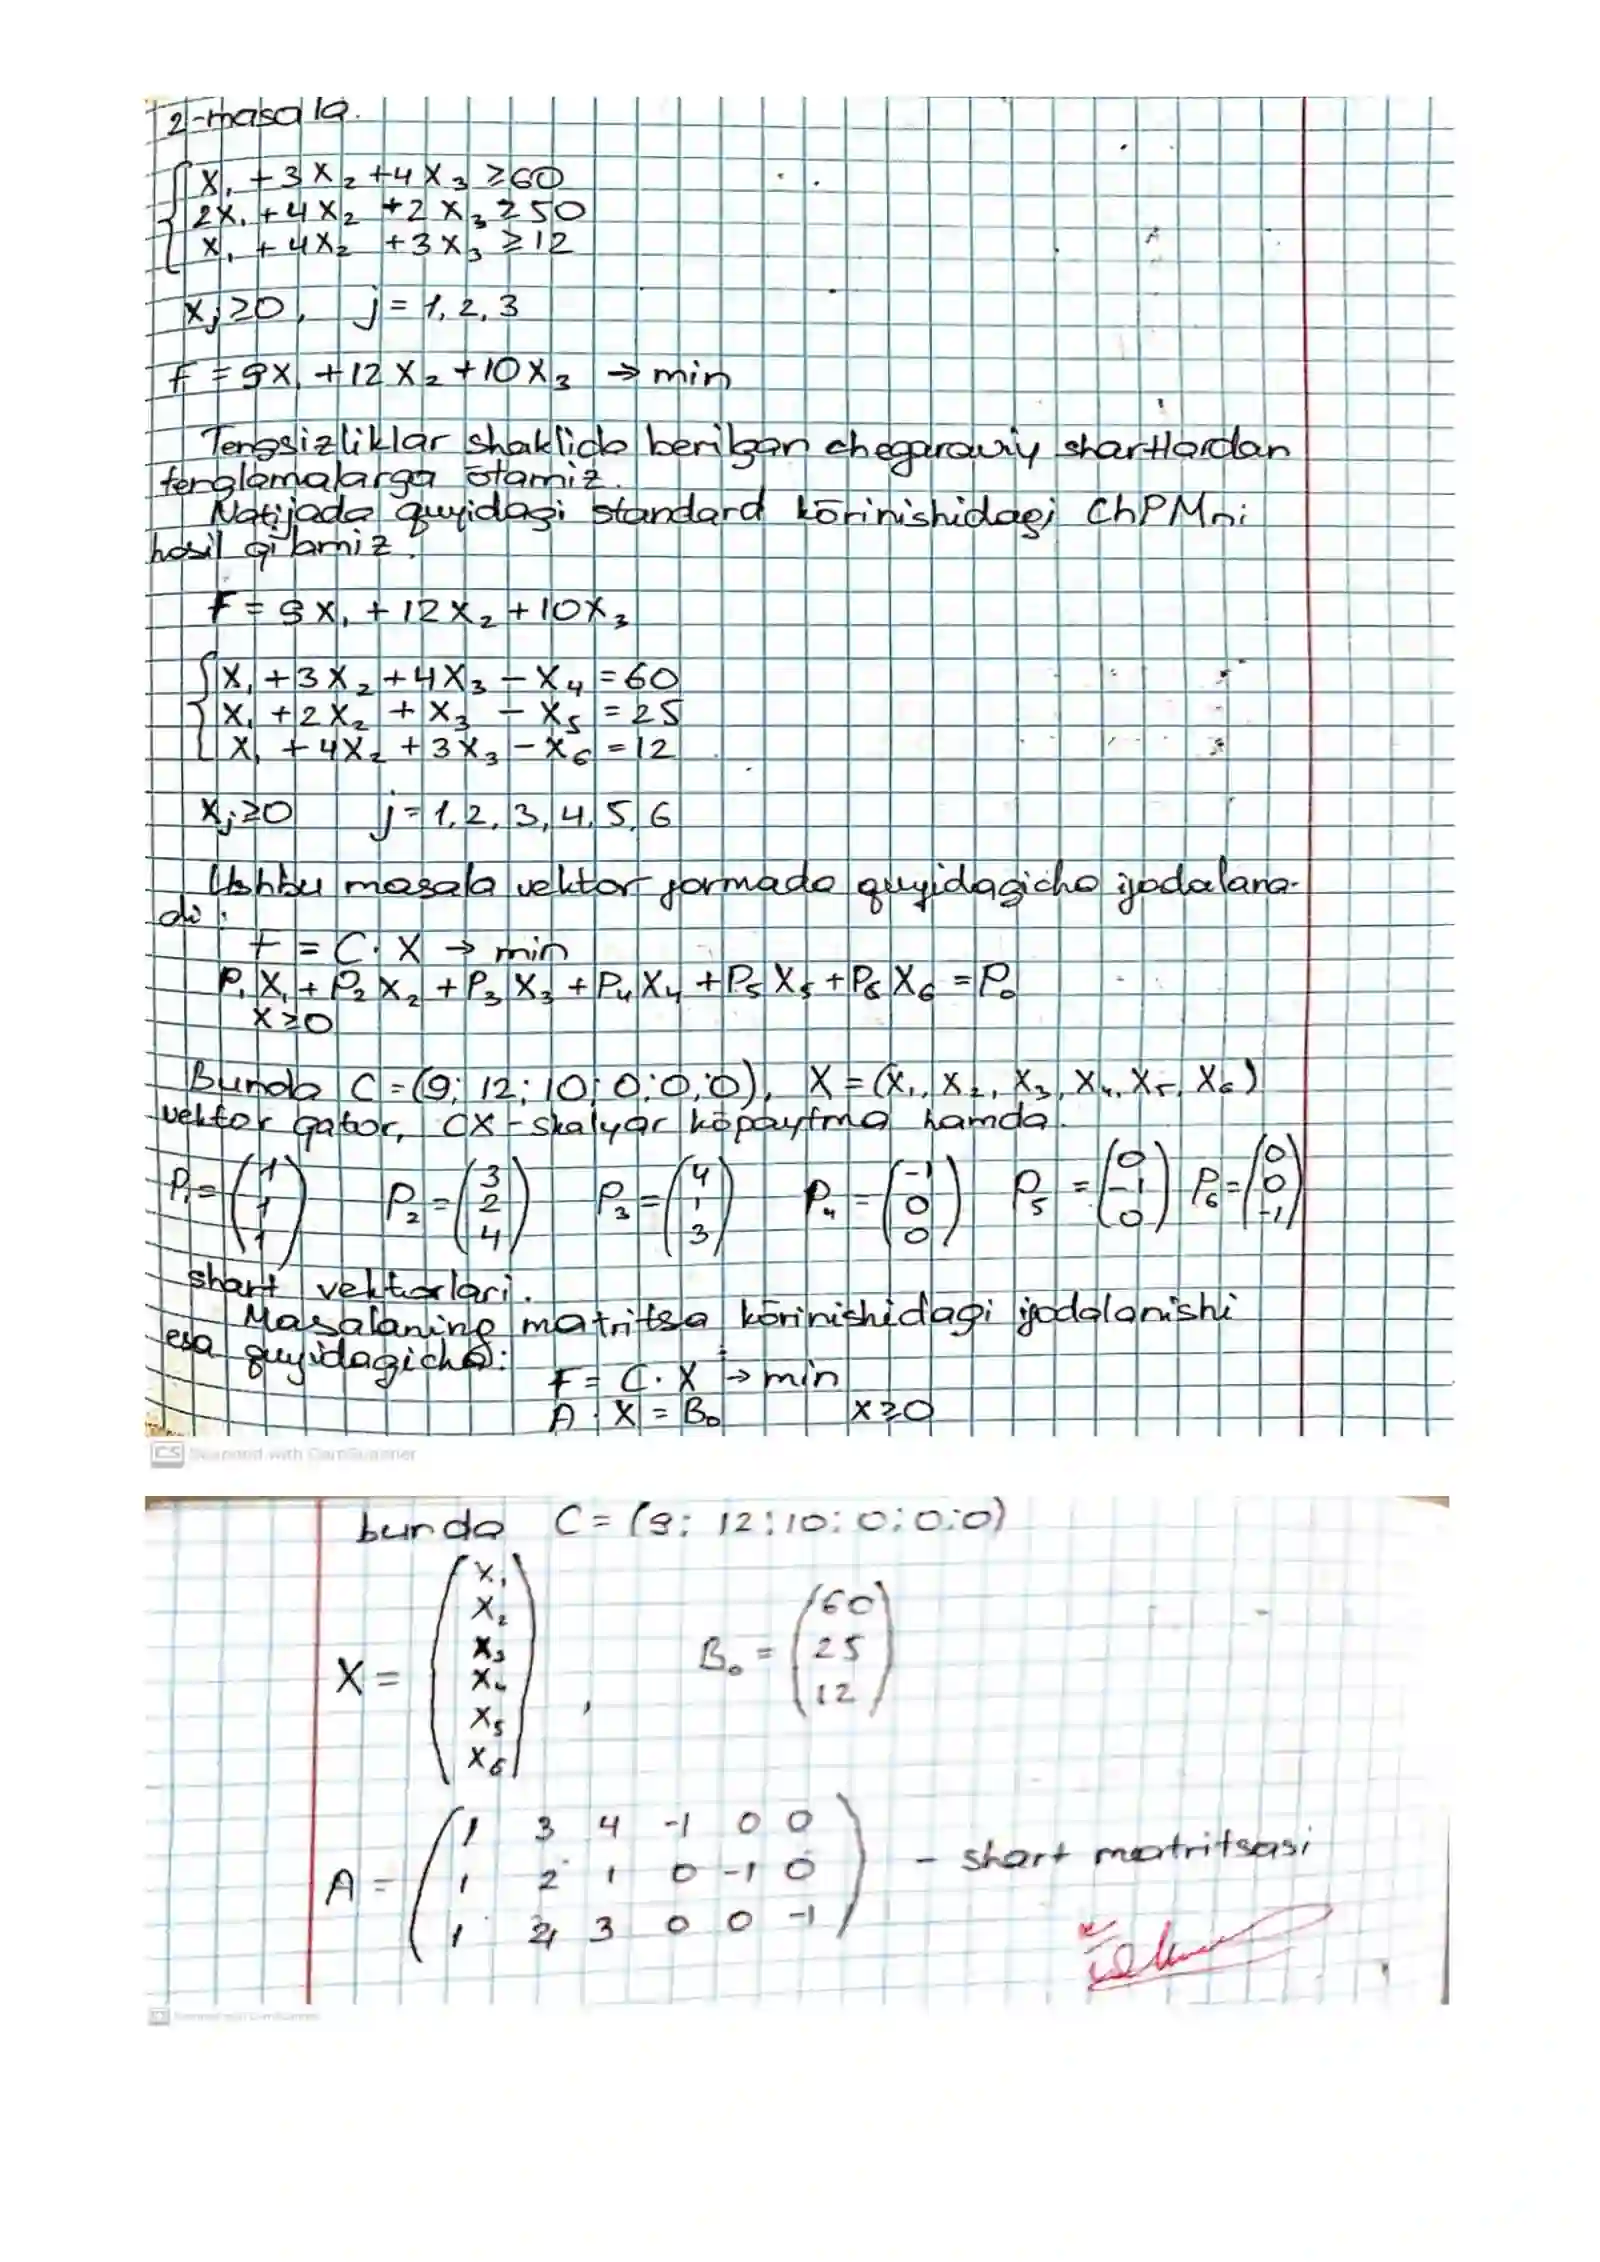 2-masala.
x₁ + 3x₂ + 4x₃ ≥ 60
2x₁ + 4x₂ + 2x₃ ≥ 50
x₁ + 4x₂ + 3x₃ ≥ 12
xⱼ ≥ 0, j = 1, 2, 3
F = 9x₁ + 12x₂ + 10x₃ → min
Tengsizliklar shaklida berilgan chegaraviy shartlardan
tenglamalarga ōtamiz.
Natijada quyidagi standard kōrinishidagi ChPMni
hosil qilamiz.
F = 9x₁ + 12x₂ + 10x₃
x₁ + 3x₂ + 4x₃ − x₄ = 60
x₁ + 2x₂ + x₃ − x₅ = 25
x₁ + 4x₂ + 3x₃ − x₆ = 12
xⱼ ≥ 0 j = 1, 2, 3, 4, 5, 6
Ushbu masala vektor formada quyidagicha ifodalana-
di:
F = C · X → min
P₁X₁ + P₂X₂ + P₃X₃ + P₄X₄ + P₅X₅ + P₆X₆ = P₀
X ≥ 0
Bunda C = (9; 12; 10; 0; 0; 0), X = (x₁, x₂, x₃, x₄, x₅, x₆)
vektor qator, CX - skalyar kōpaytma hamda.
P₁ = (1 1 1) P₂ = (3 2 4) P₃ = (4 1 3) P₄ = (-1 0 0) P₅ = (0 -1 0) P₆ = (0 0 -1)
shart vektorlari.
Masalaning matritsa kōrinishidagi ifodalanishi
esa quyidagicha:
F = C · X → min
A · X = B₀ x ≥ 0
CS Scanned with CamScanner
bunda C = (9; 12; 10; 0; 0; 0)
X = (x₁ x₂ x₃ x₄ x₅ x₆), B₀ = (60 25 12)
1 3 4 -1 0 0
A = 1 2 1 0 -1 0 - shart matritsasi
1 4 3 0 0 -1
CS Scanned with CamScanner